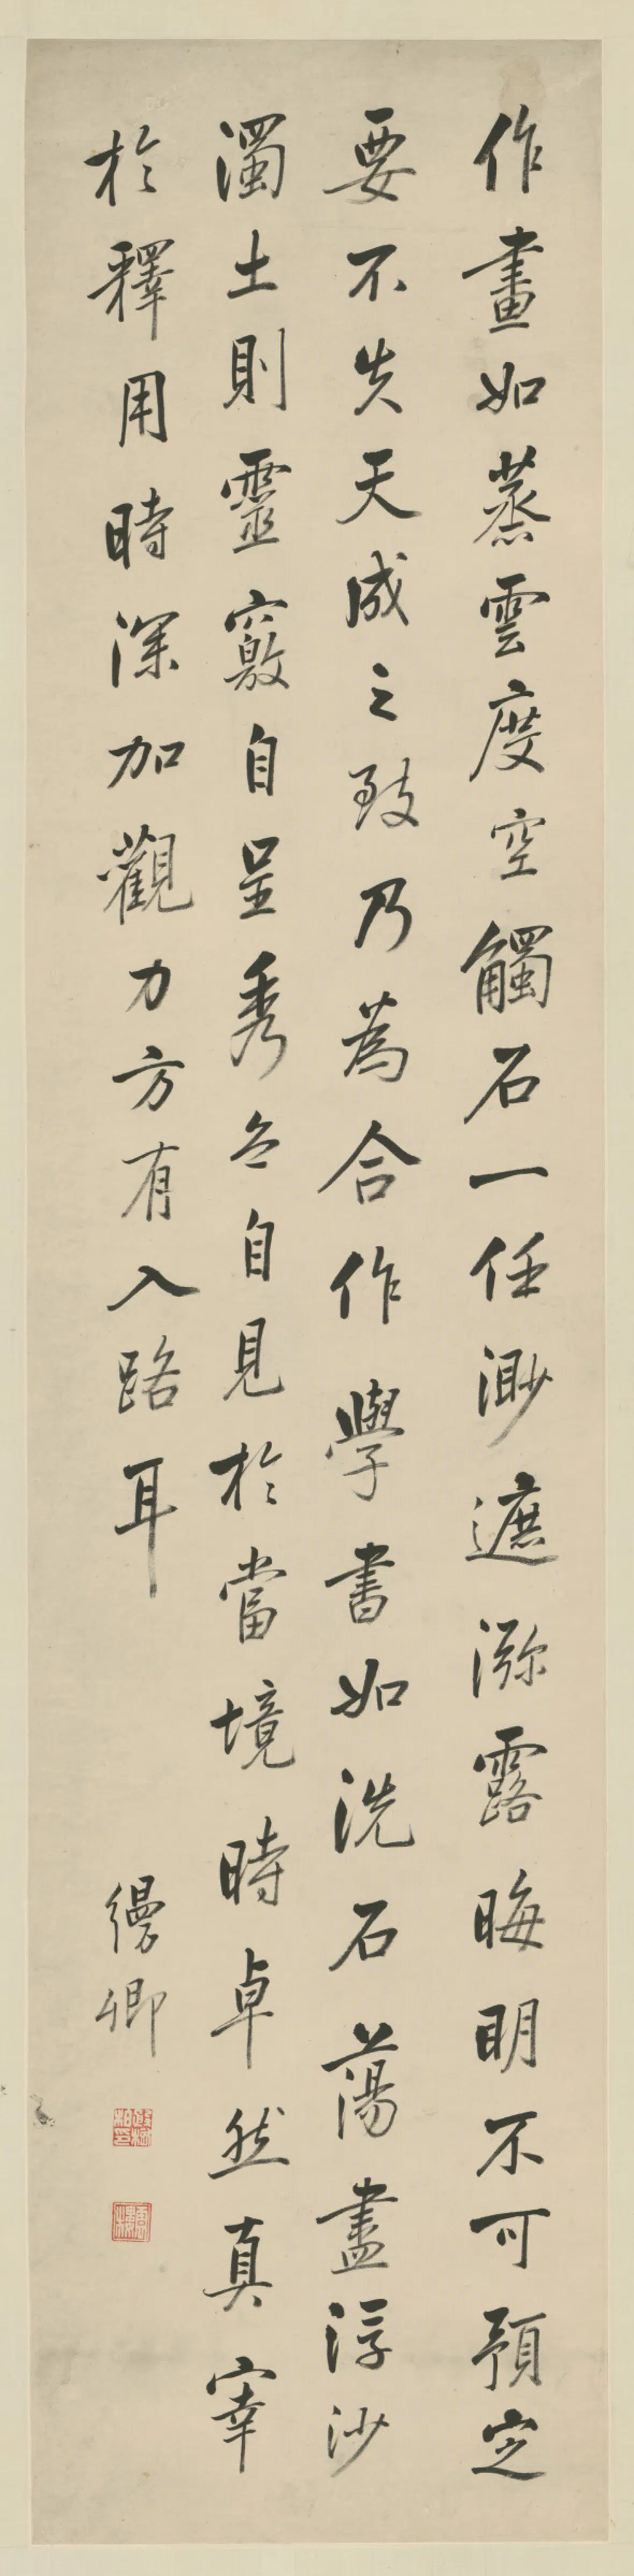 作畫如蒸雲度空觸石一任渺遮瀰露晦明不可預定
要不失天成之致乃為合作學書如洗石蕩盡浮沙
濁土則靈竅自呈秀色自見於當境時卓然真宰
於釋用時深加觀力方有入路耳
縵卿